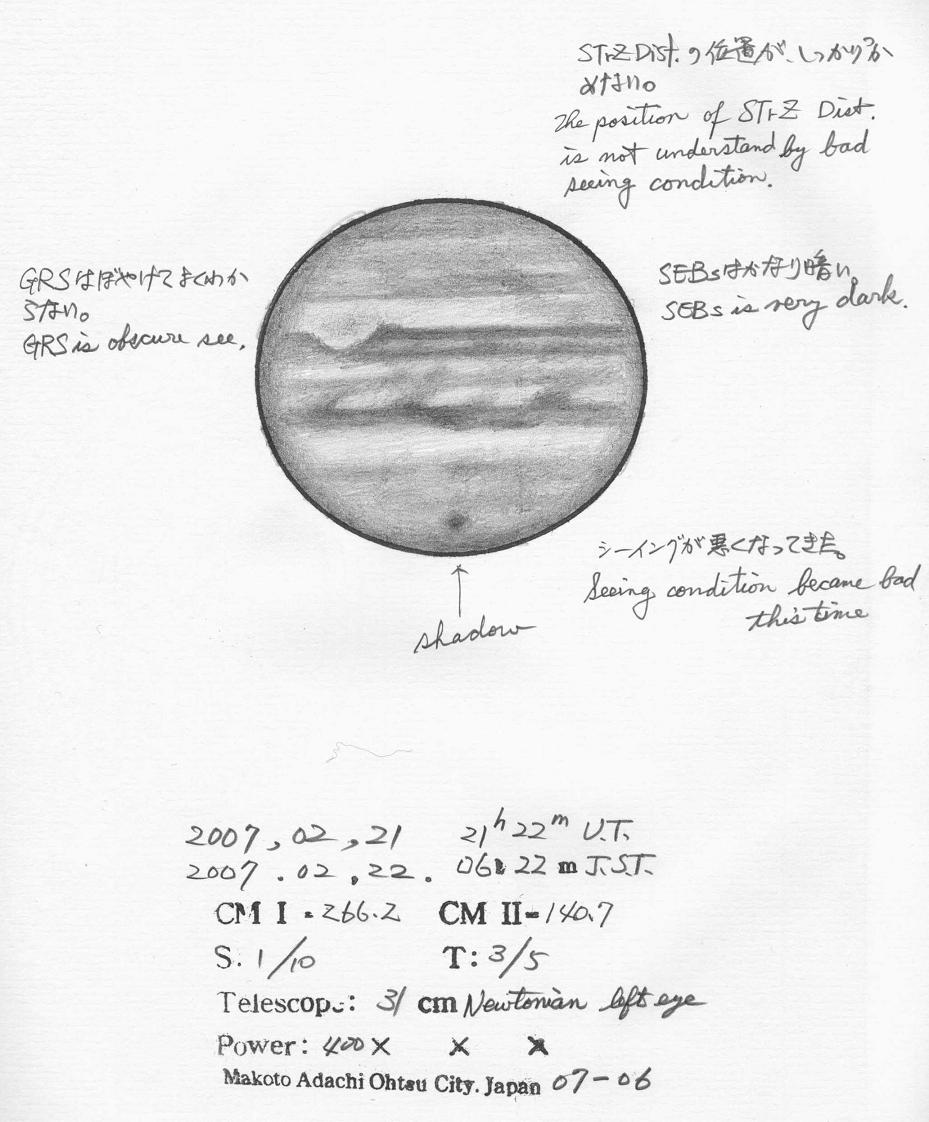 STrZ Dist. の位置が、しっかりつか
めない。
The position of STrZ Dist.
is not understand by bad
seeing condition.
GRSはぼやけてよくわか
らない。
GRS is obscure see.
SEBsはかなり暗い。
SEBs is very dark.
シーイングが悪くなってきた。
Seeing condition became bad
this time
shadow
2007, 02, 21 21h 22m U.T.
2007. 02, 22. 06h 22 m J.S.T.
CM I = 266.2 CM II = 140.7
S. 1/10 T: 3/5
Telescope: 31 cm Newtonian left eye
Power: 400 × × ×
Makoto Adachi Ohtsu City. Japan 07-06